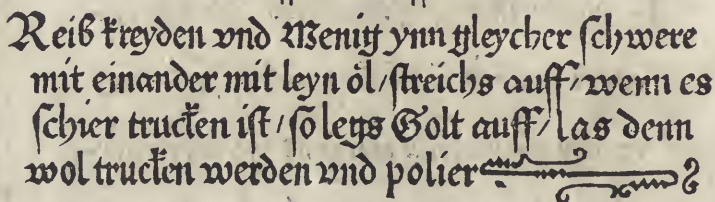 Reiß kreyden vnd Menig ynn gleycher schwere
mit einander mit leyn öl/streichs auff/wenn es
schier trucken ist/so legs Golt auff/Las denn
wol trucken werden vnd polier